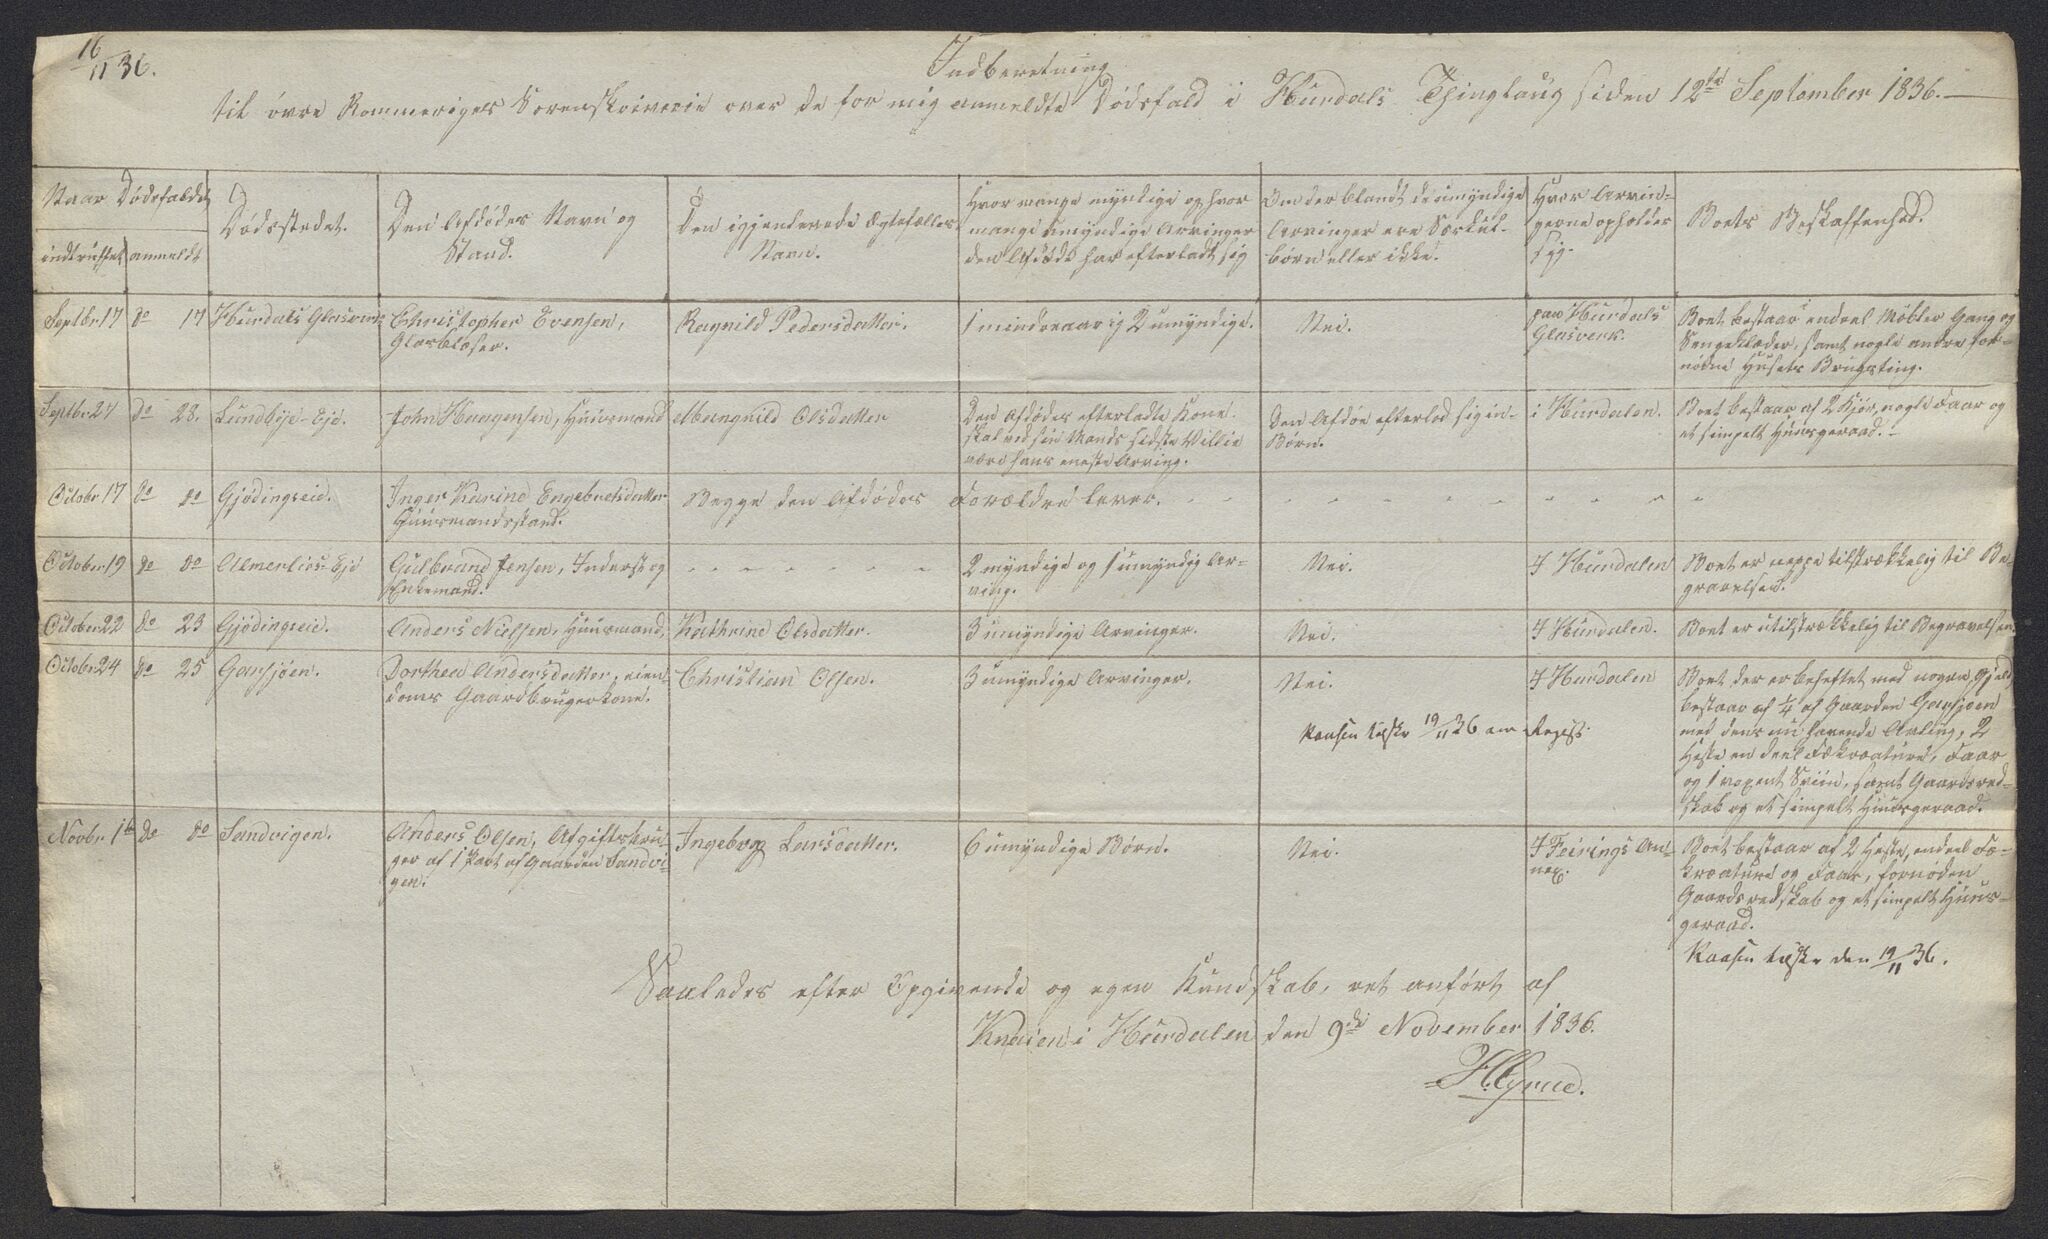 16/11 36.
Indberetning
til øvre Rommeriges Sorenskriverie over de for mig anmeldte Dødsfald i Hurdals Thinglaug siden 12te September 1836.
Naar Dødsfaldet
indtruffet
anmeldt
Dødsstedet.
Den Afdødes Navn og
Stand.
Den igjenlevende Ægtefælles
Navn.
Hvor mange myndige og hvor
mange umyndige Arvinger
den Afdøde har efterladt sig
Om der blandt de umyndige
Arvinger ere Særkul-
børn eller ikke.
Hvor Arvin-
gerne opholder
sig.
Boets Beskaffenhed.
Septbr. 17
do 17
Hurdals Glasværk
Christopher Evensen,
Glasblæser.
Ragnild Pedersdatter.
1 mindreaarig 2 umyndige.
Nei.
paa Hurdals
Glasverk.
Boet bestaar endeel Møbler Gang og
Sengeklæder, samt nogle andre for-
nødne Husets Brugsting.
Septbr. 27
do 28.
Lundbye-Eje.
John Haagensen, Huusmand
Mangnild Olsdatter
Den Afdødes efterladte Kone
skal ved sin Mands sidste Villie
være hans eneste Arving.
Den Afdøde efterlod sig in-
Børn.
i Hurdalen.
Boet bestaar af 2 Kjør, nogle Faar og
et simpelt Huusgeraad.
Octobr 17
do do
Gjødingseie.
Inger Karine Engebretsdatter
Huusmandsstand.
Begge den Afdødes Forældre lever.
October 19
do do
Almerlies-Eje
Gulbrand Jensen, Inderst og
Enkemand.
2 myndige og 1 umyndig Ar-
ving.
Nei.
I Hurdalen
Boet er neppe tilstrækkelig til Be-
gravelsen.
October 22
do 23
Gjødingseie.
Anders Nielsen, Huusmand,
Kathrine Olsdatter.
3 umyndige Arvinger.
Nei.
I Hurdalen.
Boet er utilstrækkelig til Begravelsen.
Octobr. 24
do 25
Garsjøen.
Dorthea Andersdatter, eien-
doms Gaardbrugerkone.
Christian Olsen.
3 umyndige Arvinger.
Nei.
I Hurdalen
Boet der er beheftet med nogen Gjeld
bestaar af 1/4 af Gaarden Garsjøen
med dens nu havende Avling, 2
Heste en deel Fækreature, Faar
og 1 Sviin, samt Gaardsred-
skab og et simpelt Huusgeraad.
19/11 36 Regist.
Novbr. 1te
do do
Sandvigen.
Anders Olsen, Afgiftsbru-
ger af 1 Part af Gaarden Sandvi-
gen.
Ingeborg Larsdatter.
6 umyndige Børn.
Nei.
I Feirings An-
nex.
Boet bestaar af 2 Heste, endeel Fæ-
kreature og Faar, fornøden
Gaardsredskab og et simpelt Huus-
geraad.
den 19/11 36.
Saaledes efter Opgivende og egen Kundskab, ret anført af
Knaien i Hurdalen den 9de November 1836.